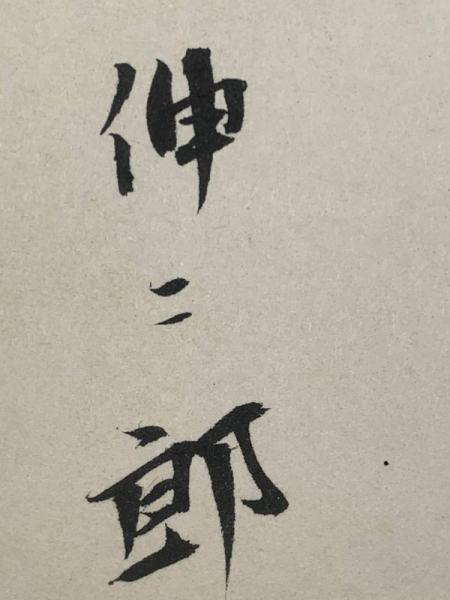 伸二郎